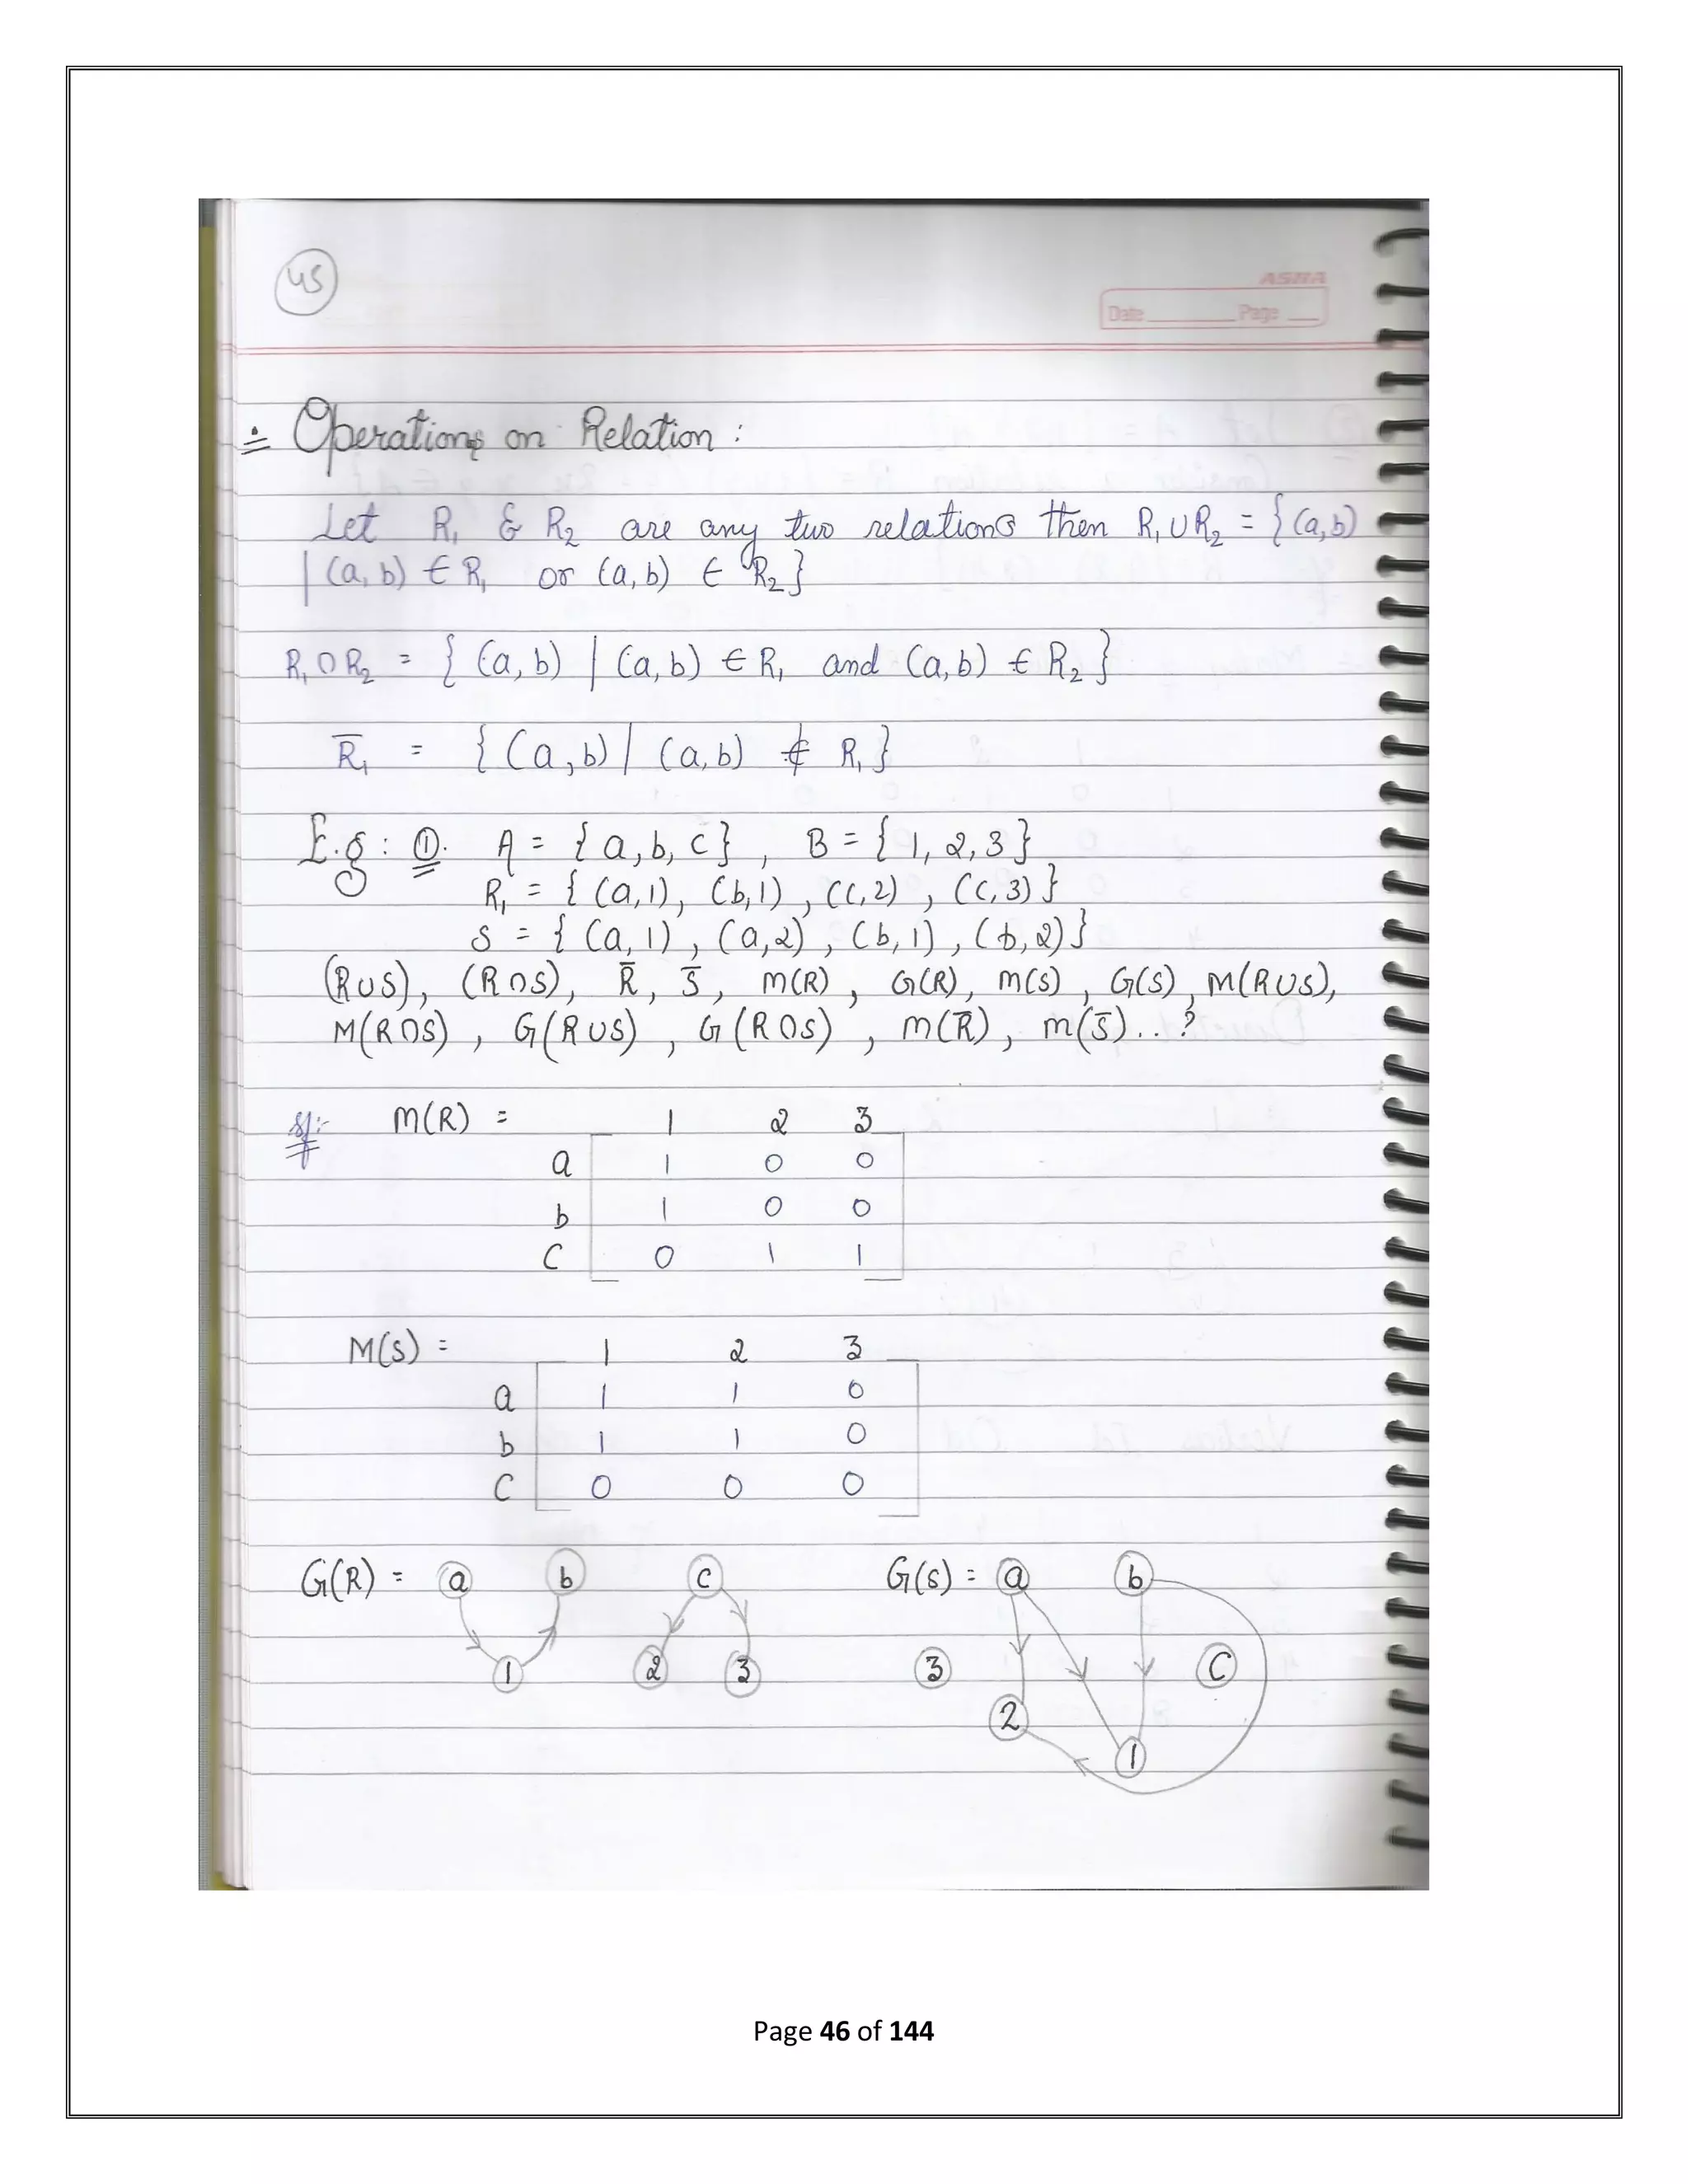 45
ASMA
Date Page
Operations on Relation :
Let R₁ & R₂ are any two relations then R₁∪R₂ = {(a,b)
| (a,b) ∈ R₁ or (a,b) ∈ R₂}
R₁∩R₂ = { (a,b) | (a,b) ∈ R₁ and (a,b) ∈ R₂}
R̅₁ = { (a,b) | (a,b) ∉ R₁}
E.g : ①. A = {a,b,c} , B = { 1, 2, 3}
R₁ = { (a,1), (b,1) , (c,2) , (c,3)}
S = { (a,1) , (a,2) , (b,1) , (b,2)}
(R∪S), (R∩S), R̅, S̅, m(R) , G(R), m(s) , G(s) , M(R∪S),
M(R∩S) , G(R∪S) , G(R∩S) , m(R̅) , m(S̅) . . ?
Sol:- m(R) = 1 2 3
a 1 0 0
b 1 0 0
C 0 1 1
M(S) = 1 2 3
a 1 1 0
b 1 1 0
C 0 0 0
G(R) = a b c G(s) = a b
1 2 3 3 C
2
1
Page 46 of 144